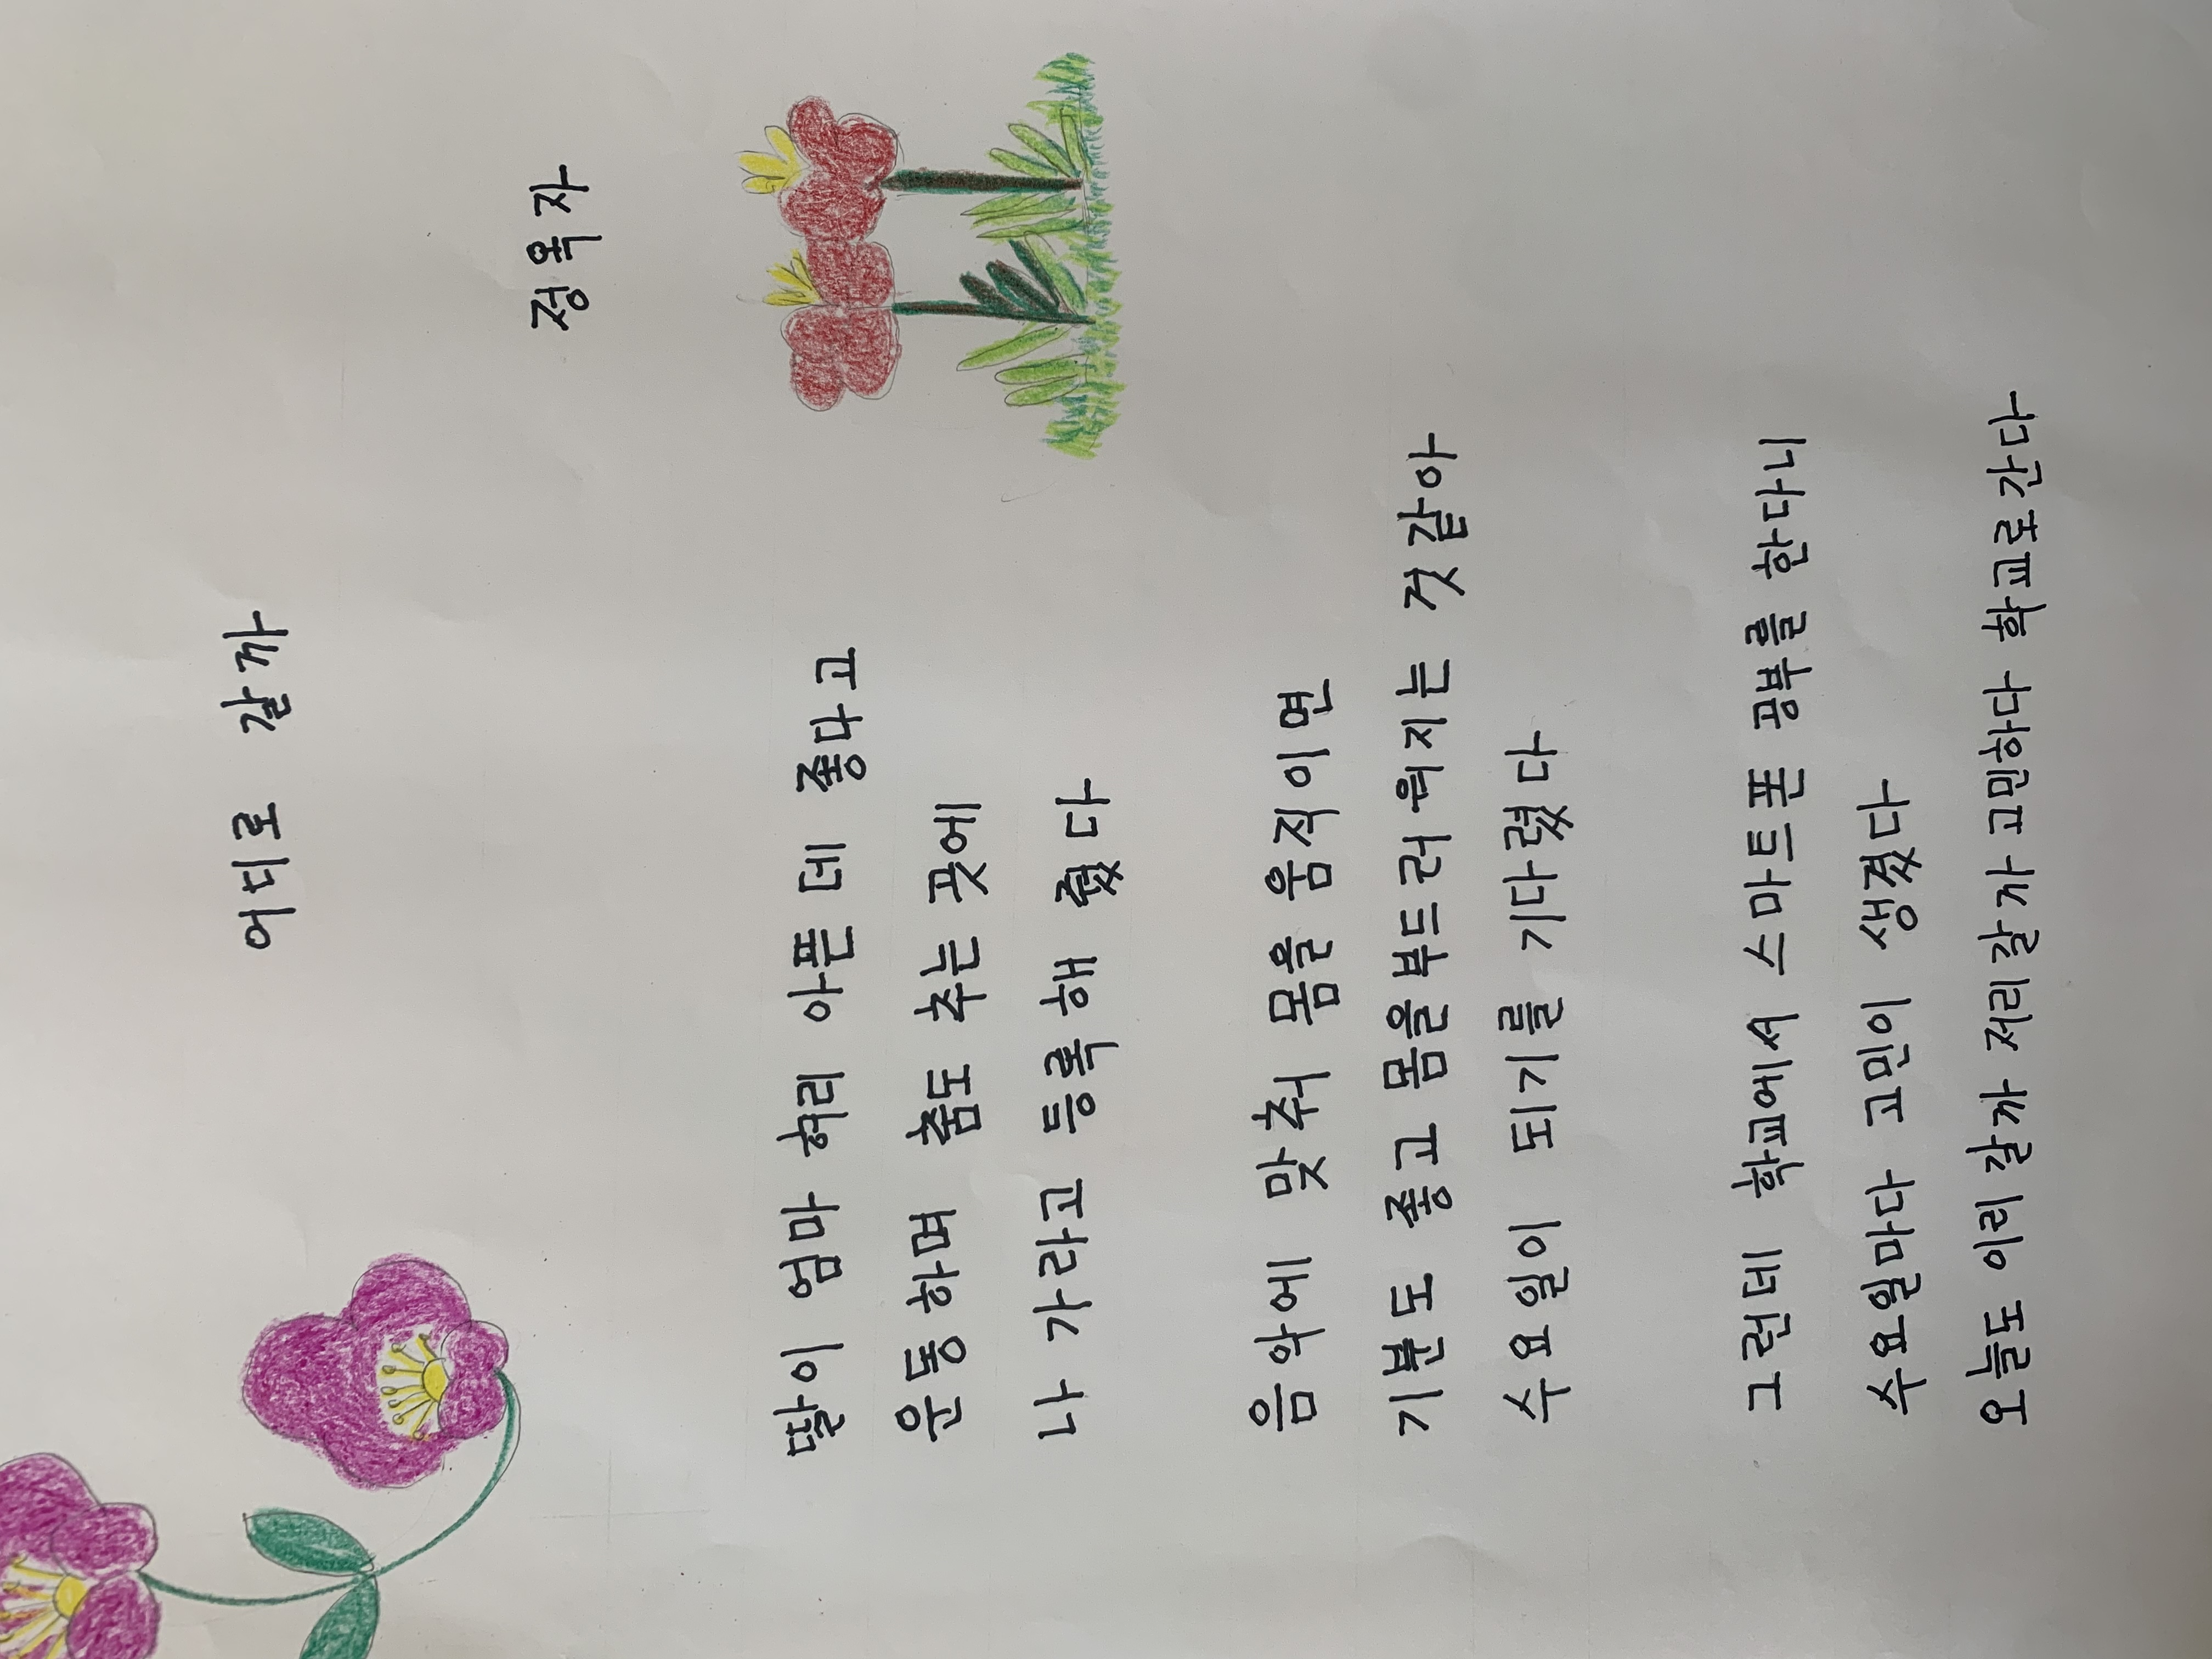 어디로 갈까
정옥자
딸이 엄마 허리 아픈 데 좋다고
운동하며 춤도 추는 곳에
나 가라고 등록해 줬다
음악에 맞춰 몸을 움직이면
기분도 좋고 몸을 부드러워지는 것 같아
수요일이 되기를 기다렸다
그런데 학교에서 스마트폰 공부를 한다니
수요일마다 고민이 생겼다
오늘도 이리 갈까 저리 갈까 고민하다 학교로 간다